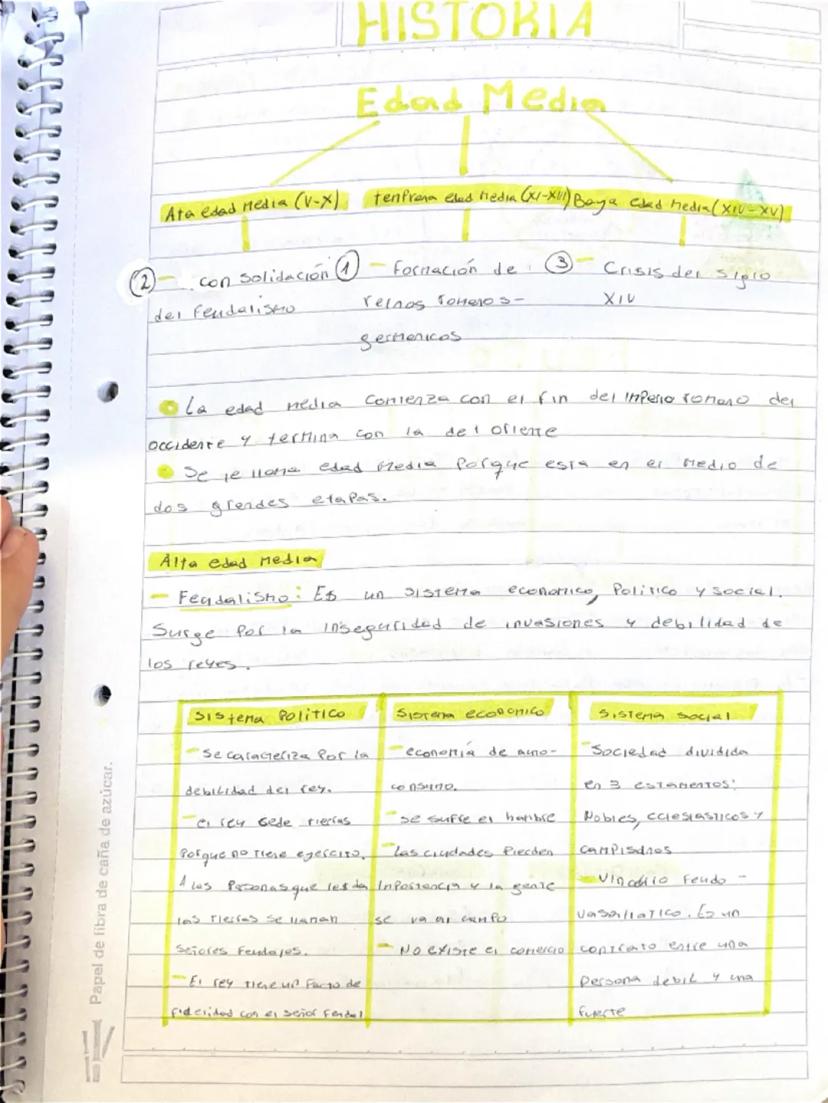 HISTORIA
Edad Media
Ata edad Media (V-X) tenprana edad media (XI-XIII) Baya edad Media (XIV-XV)
② - consolidación ① - Formación de ③ - Crisis del siglo
del Feudalismo reinos romeros- XIV
germenicos
La edad media comienza con el fin del imperio romano del
occidente y termina con la del oriente
Se le llama edad Media Porque esta en el medio de
dos grendes etapas.
Alta edad media
- Feudalismo: Es un sistema economico, Politico y social.
Surge Por la inseguridad de invasiones y debilidad de
los reyes.
Sistema Politico
- Se caracteriza Por la
debilidad del rey.
- el rey cede tierras
Porque no tiene ejercito.
A las Personas que les da
las tierras se llaman
señores feudales.
- El rey tiene un Pacto de
fidelidad con el señor feudal
Sistema economico
- economía de auto-
consumo.
- se sufre el hambre
- Las ciudades Pierden
importancia y la gente
se va al campo
- No existe el comercio
Sistema social
- Sociedad dividida
en 3 estamentos:
Nobles, eclesiasticos y
campisinos
- Vinculio Feudo-
vasallatico. Es un
contrato entre una
Persona debil y una
fuerte
Papel de fibra de caña de azúcar.